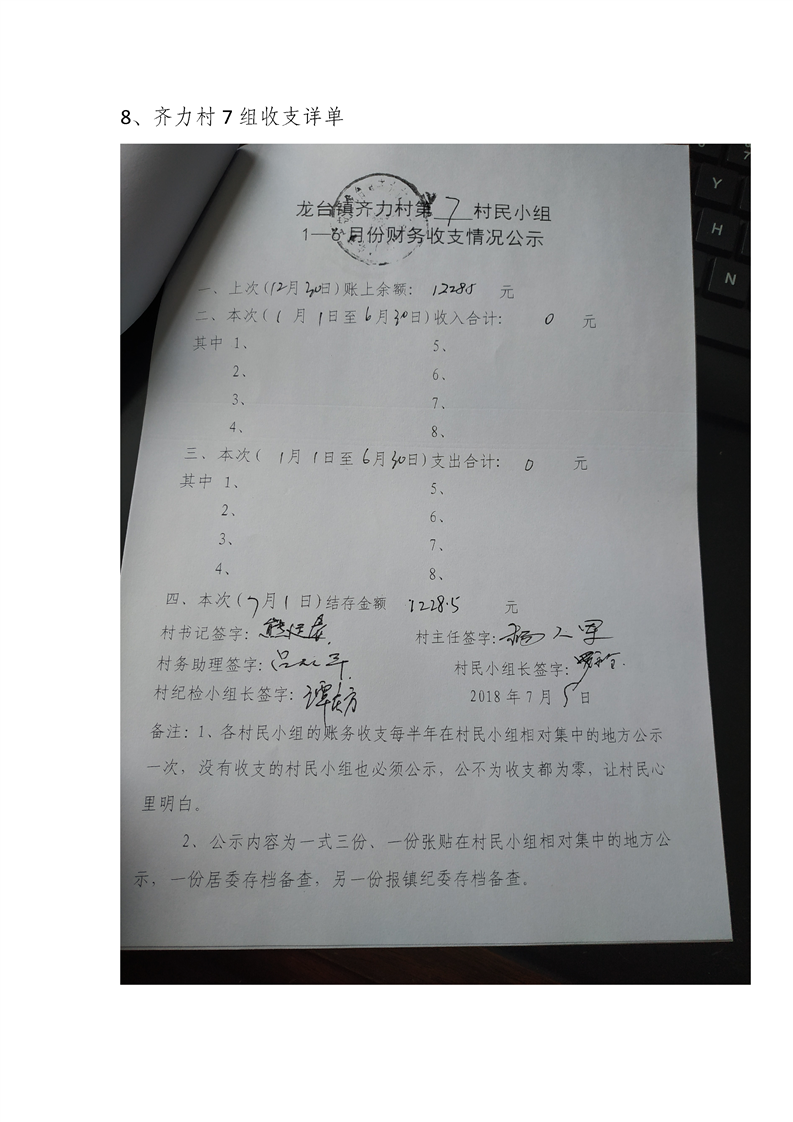 8、齐力村 7 组收支详单
龙台镇齐力村第 7 村民小组
1—6 月份财务收支情况公示
一、上次(12月30日)账上余额: 1228.5 元
二、本次(1月1日至6月30日)收入合计: 0 元
其中 1、 5、
2、 6、
3、 7、
4、 8、
三、本次(1月1日至6月30日)支出合计: 0 元
其中 1、 5、
2、 6、
3、 7、
4、 8、
四、本次(7月1日)结存金额 1228.5 元
村书记签字: 村主任签字:
村务助理签字: 村民小组长签字:
村纪检小组长签字: 2018 年 7 月 5 日
备注: 1、各村民小组的账务收支每半年在村民小组相对集中的地方公示
一次, 没有收支的村民小组也必须公示, 公不为收支都为零, 让村民心
里明白。
2、公示内容为一式三份、一份张贴在村民小组相对集中的地方公
示, 一份居委存档备查, 另一份报镇纪委存档备查。
Y
H
N